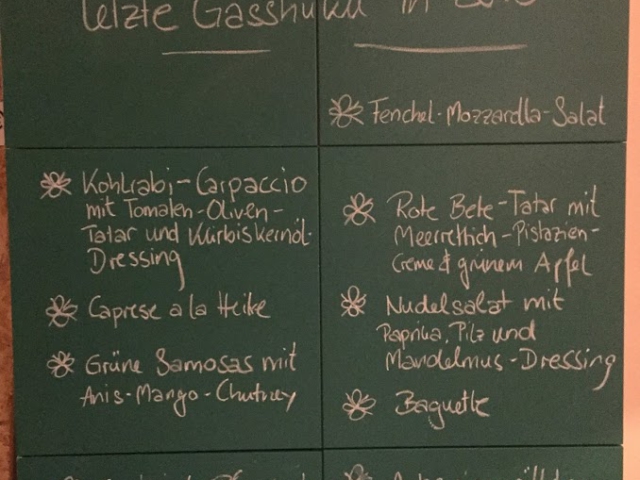 letzte
Fenchel-Mozzarella-Salat
Kohlrabi-Carpaccio
mit Tomaten-Oliven-
Tatar und Kürbiskernöl-
Dressing
Caprese a la Heike
Grüne Samosas mit
Anis-Mango-Chutney
Rote Bete-Tatar mit
Meerrettich-Pistazien-
Creme & grünem Apfel
Nudelsalat mit
Paprika, Pilz und
Mandelmus-Dressing
Baguette